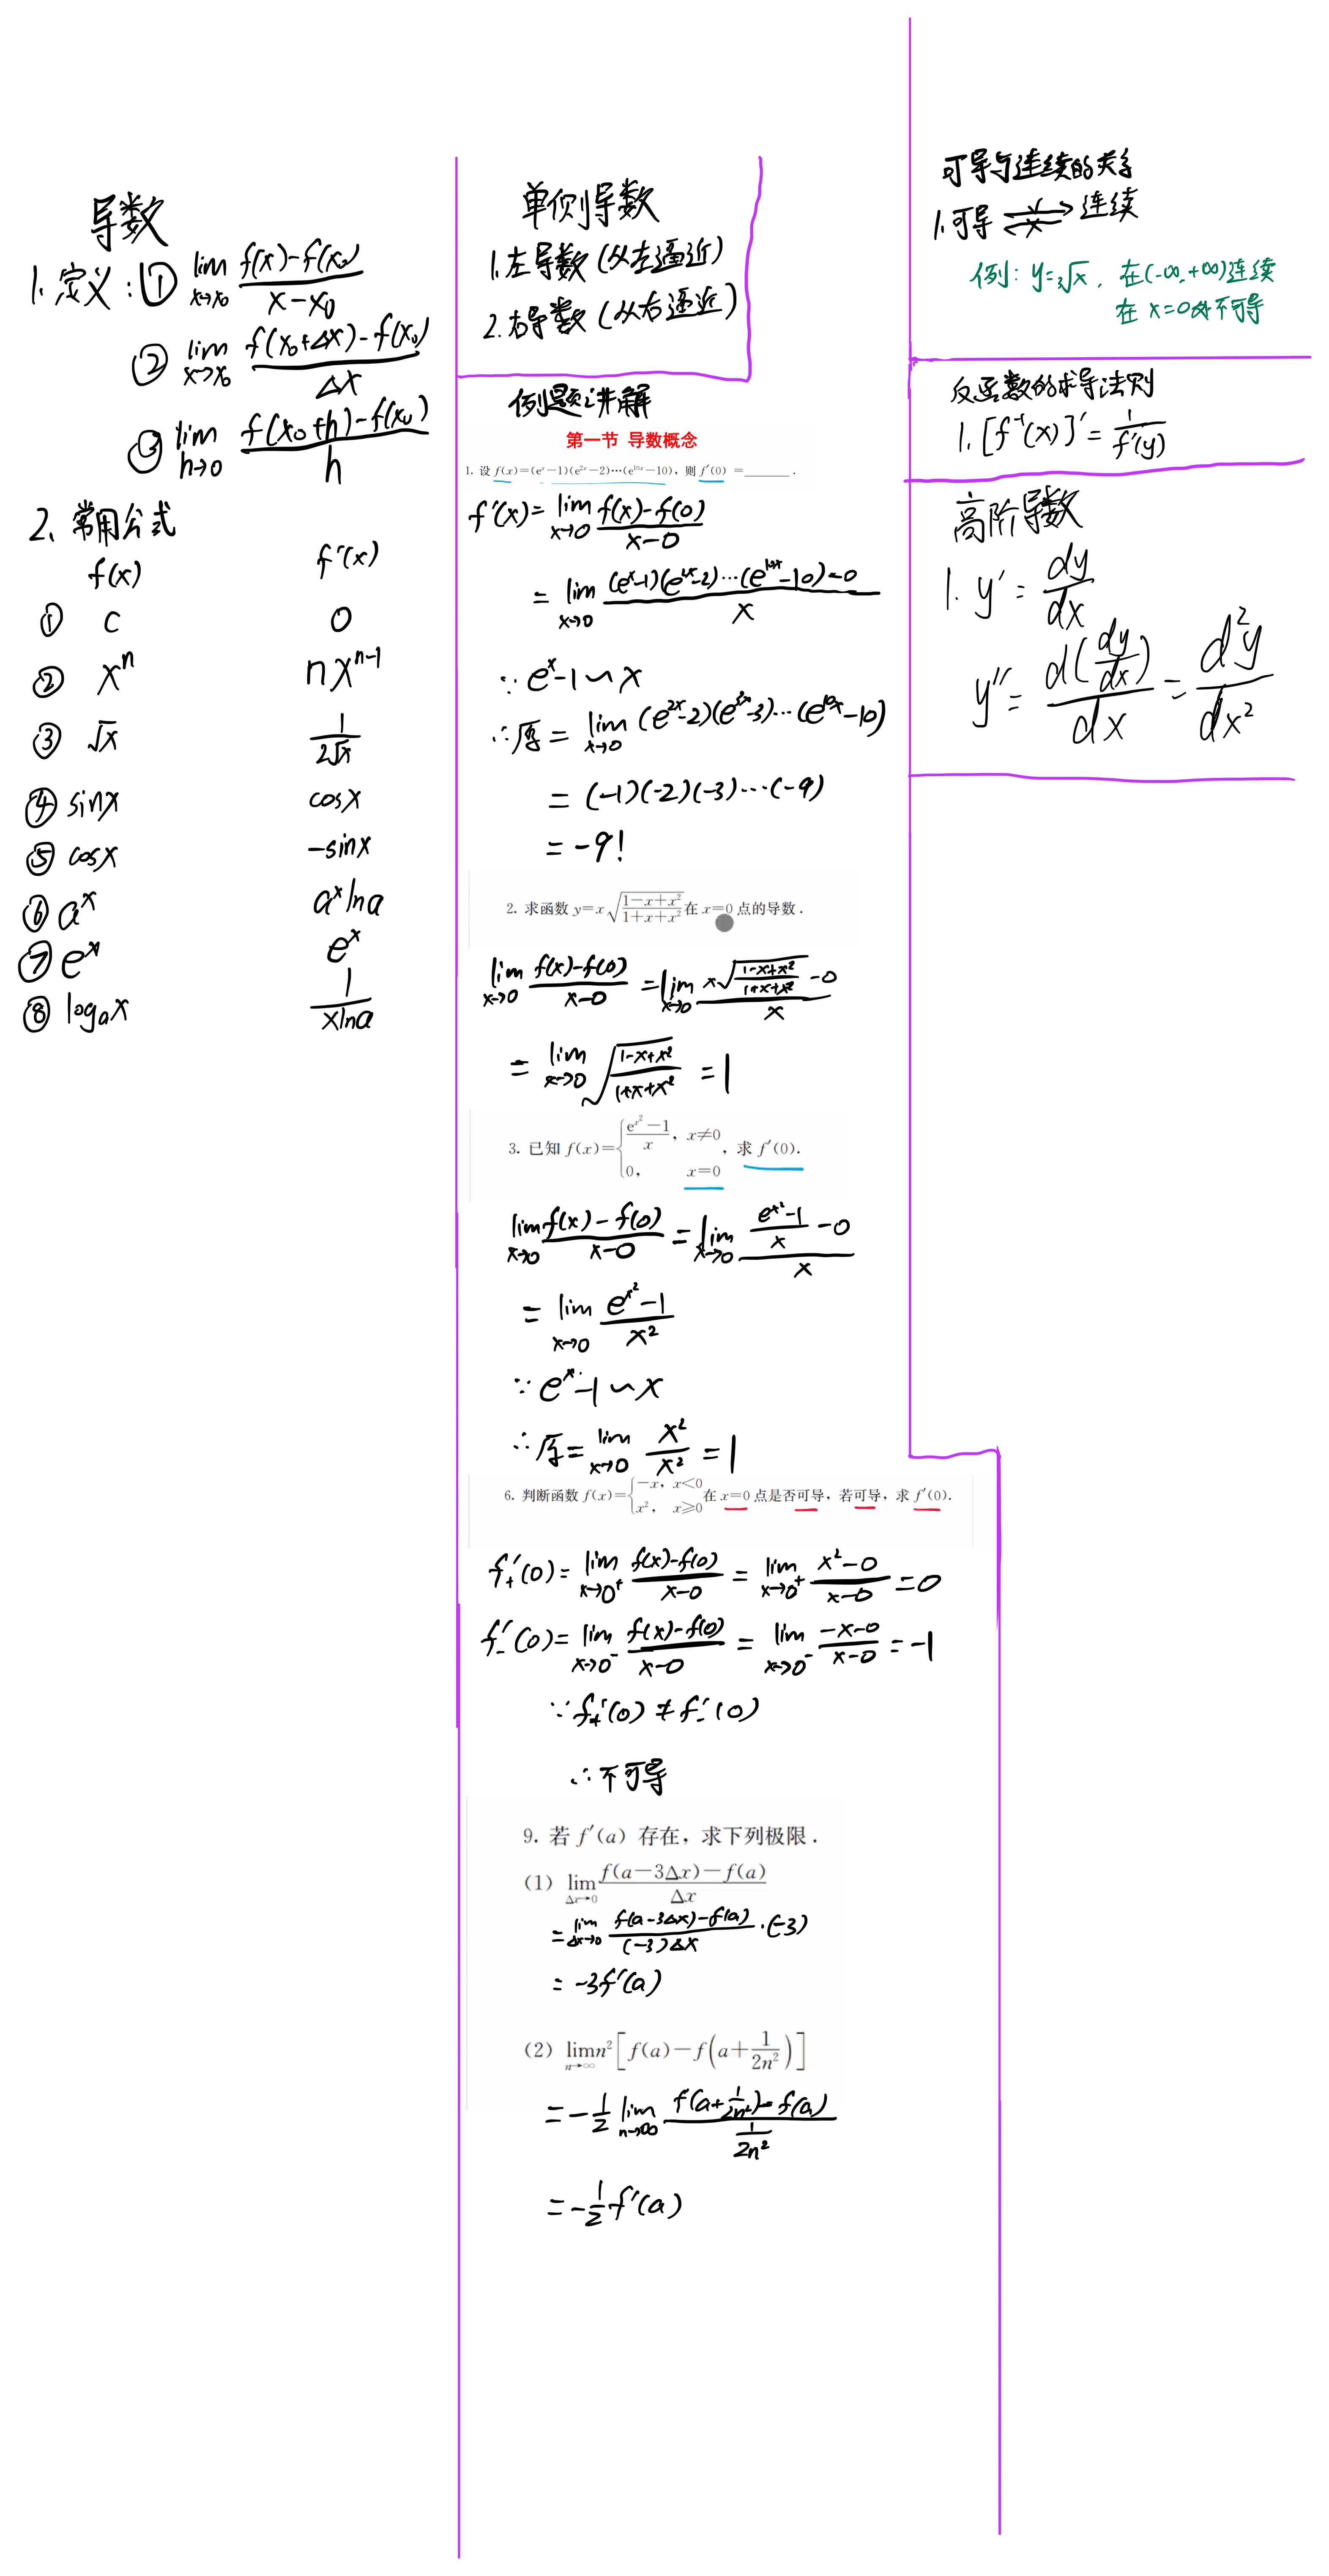 导数
1. 定义：① lim x→x₀ (f(x)-f(x₀))/(x-x₀)
② lim x→x₀ (f(x₀+Δx)-f(x₀))/Δx
③ lim h→0 (f(x₀+h)-f(x₀))/h
2、常用公式
f(x) f'(x)
① c 0
② xⁿ nxⁿ⁻¹
③ √x 1/(2√x)
④ sinx cosx
⑤ cosx -sinx
⑥ aˣ aˣlna
⑦ eˣ eˣ
⑧ logₐx 1/(xlna)
单侧导数
1.左导数(从左逼近)
2.右导数(从右逼近)
例题讲解
第一节 导数概念
1. 设 f(x)=(eˣ-1)(e²ˣ-2)…(e¹⁰ˣ-10)，则 f'(0) =______ .
f'(x)= lim x→0 (f(x)-f(0))/(x-0)
= lim x→0 ((eˣ-1)(e²ˣ-2)…(e¹⁰ˣ-10)-0)/x
∵ eˣ-1∽x
∴原= lim x→0 (e²ˣ-2)(e³ˣ-3)…(e¹⁰ˣ-10)
= (-1)(-2)(-3)…(-9)
= -9!
2. 求函数 y=x√((1-x+x²)/(1+x+x²)) 在 x=0 点的导数 .
lim x→0 (f(x)-f(0))/(x-0) = lim x→0 (x√((1-x+x²)/(1+x+x²))-0)/x
= lim x→0 √((1-x+x²)/(1+x+x²)) = 1
3. 已知 f(x)={(e^(x²)-1)/x， x≠0
0， x=0 ，求 f'(0).
lim x→0 (f(x)-f(0))/(x-0) = lim x→0 ((e^(x²)-1)/x-0)/x
= lim x→0 (e^(x²)-1)/x²
∵ eˣ-1∽x
∴原= lim x→0 x²/x² = 1
6. 判断函数 f(x)={-x， x<0
x²， x≥0 在 x=0 点是否可导，若可导，求 f'(0).
f₊'(0)= lim x→0⁺ (f(x)-f(0))/(x-0) = lim x→0⁺ (x²-0)/(x-0) =0
f₋'(0)= lim x→0⁻ (f(x)-f(0))/(x-0) = lim x→0⁻ (-x-0)/(x-0) = -1
∵ f₊'(0) ≠ f₋'(0)
∴ 不可导
9. 若 f'(a) 存在，求下列极限 .
(1) lim Δx→0 (f(a-3Δx)-f(a))/Δx
= lim Δx→0 (f(a-3Δx)-f(a))/((-3)Δx) ·(-3)
= -3f'(a)
(2) lim n→∞ n²[f(a)-f(a+1/(2n²))]
= -1/2 lim n→∞ (f(a+1/(2n²))-f(a))/(1/(2n²))
= -1/2 f'(a)
可导与连续的关系
1.可导 ⇄ 连续
例：y=³√x，在(-∞,+∞)连续
在 x=0处不可导
反函数的求导法则
1. [f⁻¹(x)]'= 1/f'(y)
高阶导数
1. y'= dy/dx
y''= d(dy/dx)/dx = d²y/dx²